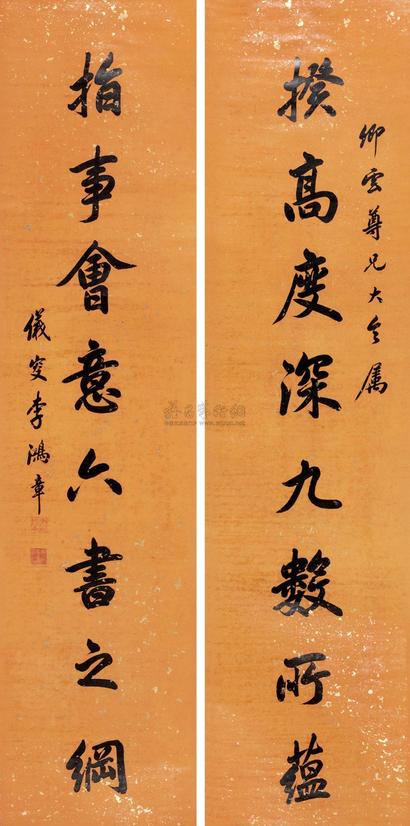 卿雲尊兄大人属
揆高度深九數所蘊
指事會意六書之綱
儀叟李鴻章